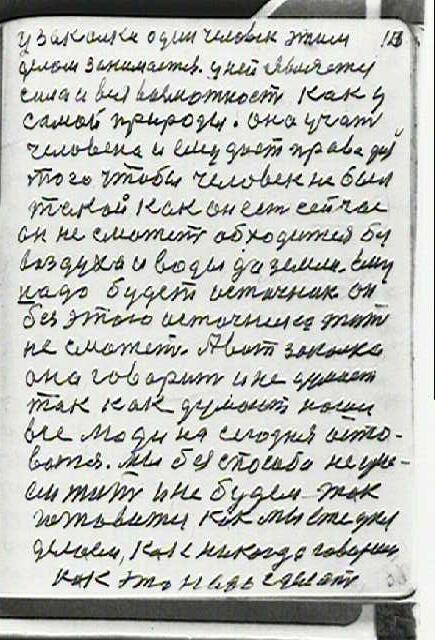 у закалки один человек этим 123
делом занимается. у ней является
сила и вся возможность как у
самой природы. она учит
человека и ему дает права для
того чтобы человек не был
такой как он есть сейчас
он не сможет обходится без
воздуха и воды да земли. ему
надо будет источник он
без этого источника жить
не сможет. А вот закалка
она говорит и не думает
так как думают наши
все люди на сегодня
мы без способа не
жить и не будем так
как мы
делаем, как никогда говорим
как это надо сделать